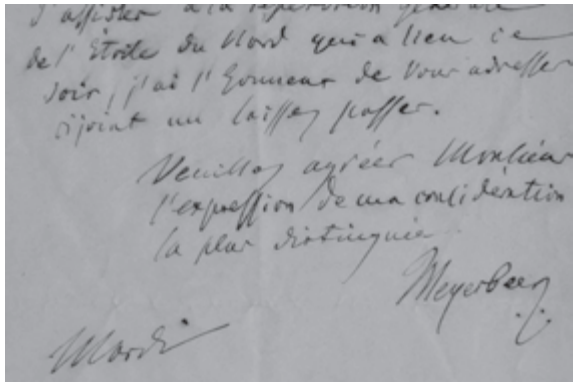 d'assister à la répétition générale
de l'Étoile du Nord qui a lieu ce
soir, j'ai l'honneur de vous adresser
cijoint un laissez passer.
Veuillez agréer Monsieur
l'expression de ma considération
la plus distinguée
Meyerbeer.
Mardi